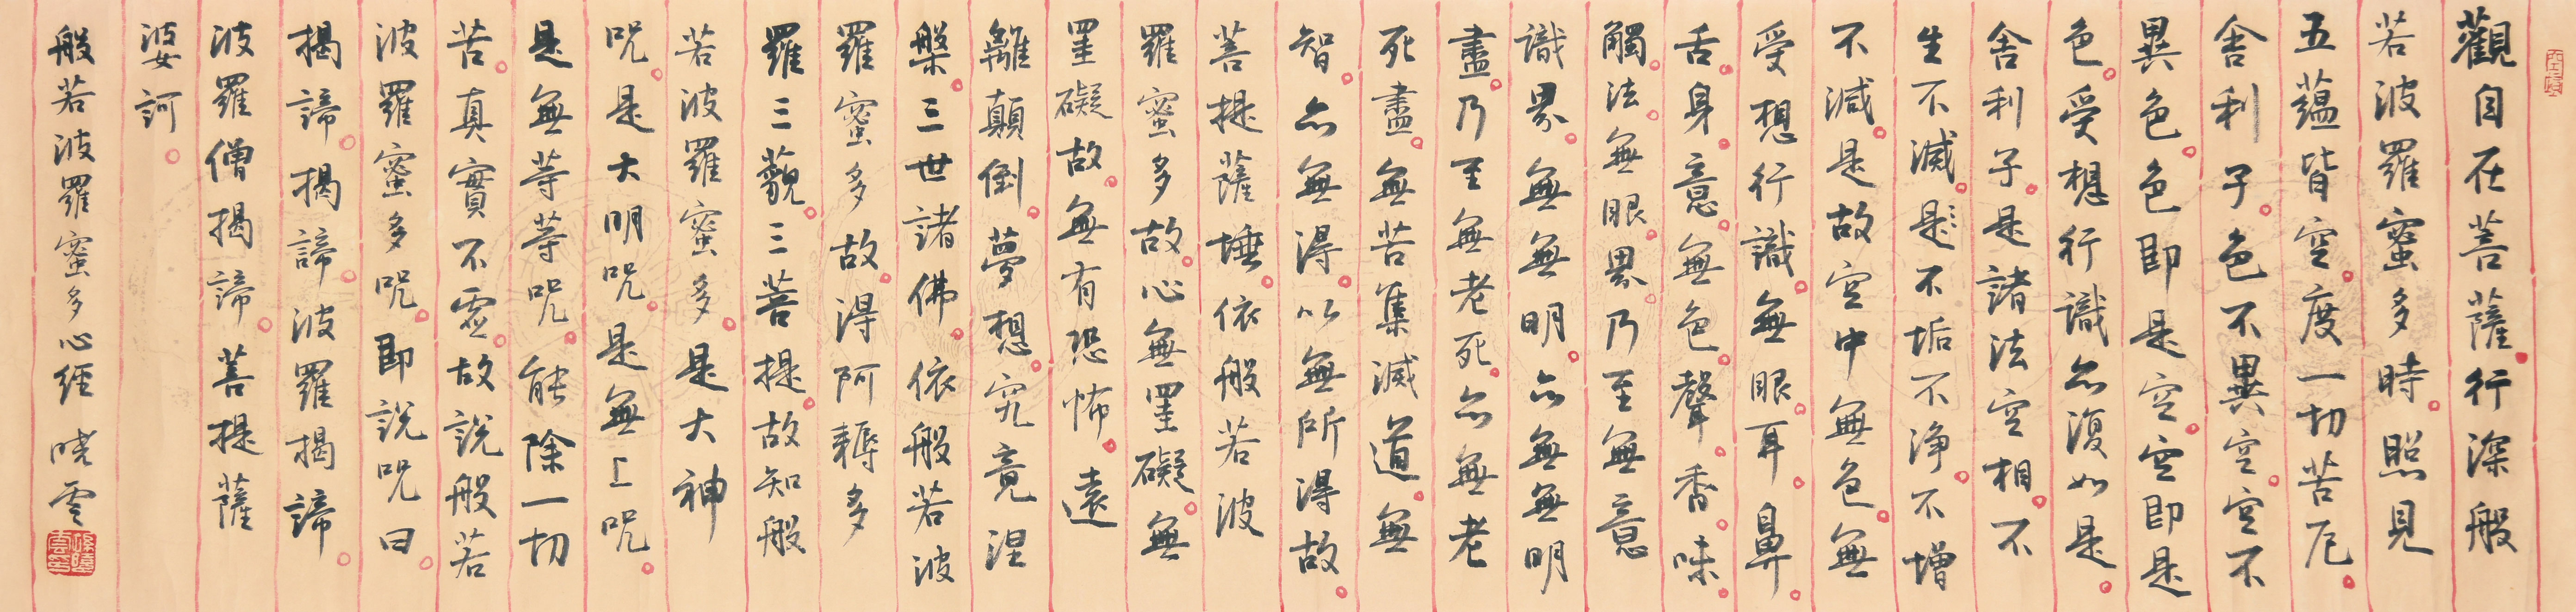 觀自在菩薩行深般
若波羅蜜多時照見
五蘊皆空度一切苦厄
舍利子色不異空空不
異色色即是空空即是
色受想行識亦復如是
舍利子是諸法空相不
生不滅是不垢不淨不增
不減是故空中無色無
受想行識無眼耳鼻
舌身意無色聲香味
觸法無眼界乃至無意
識界無無明亦無無明
盡乃至無老死亦無老
死盡無苦集滅道無
智亦無得以無所得故
菩提薩埵依般若波
羅蜜多故心無罣礙無
罣礙故無有恐怖遠
離顛倒夢想究竟涅
槃三世諸佛依般若波
羅蜜多故得阿耨多
羅三藐三菩提故知般
若波羅蜜多是大神
咒是大明咒是無上咒
是無等等咒能除一切
苦真實不虛故說般若
波羅蜜多咒即說咒曰
揭諦揭諦波羅揭諦
波羅僧揭諦菩提薩
婆訶
般若波羅蜜多心經 曉雲